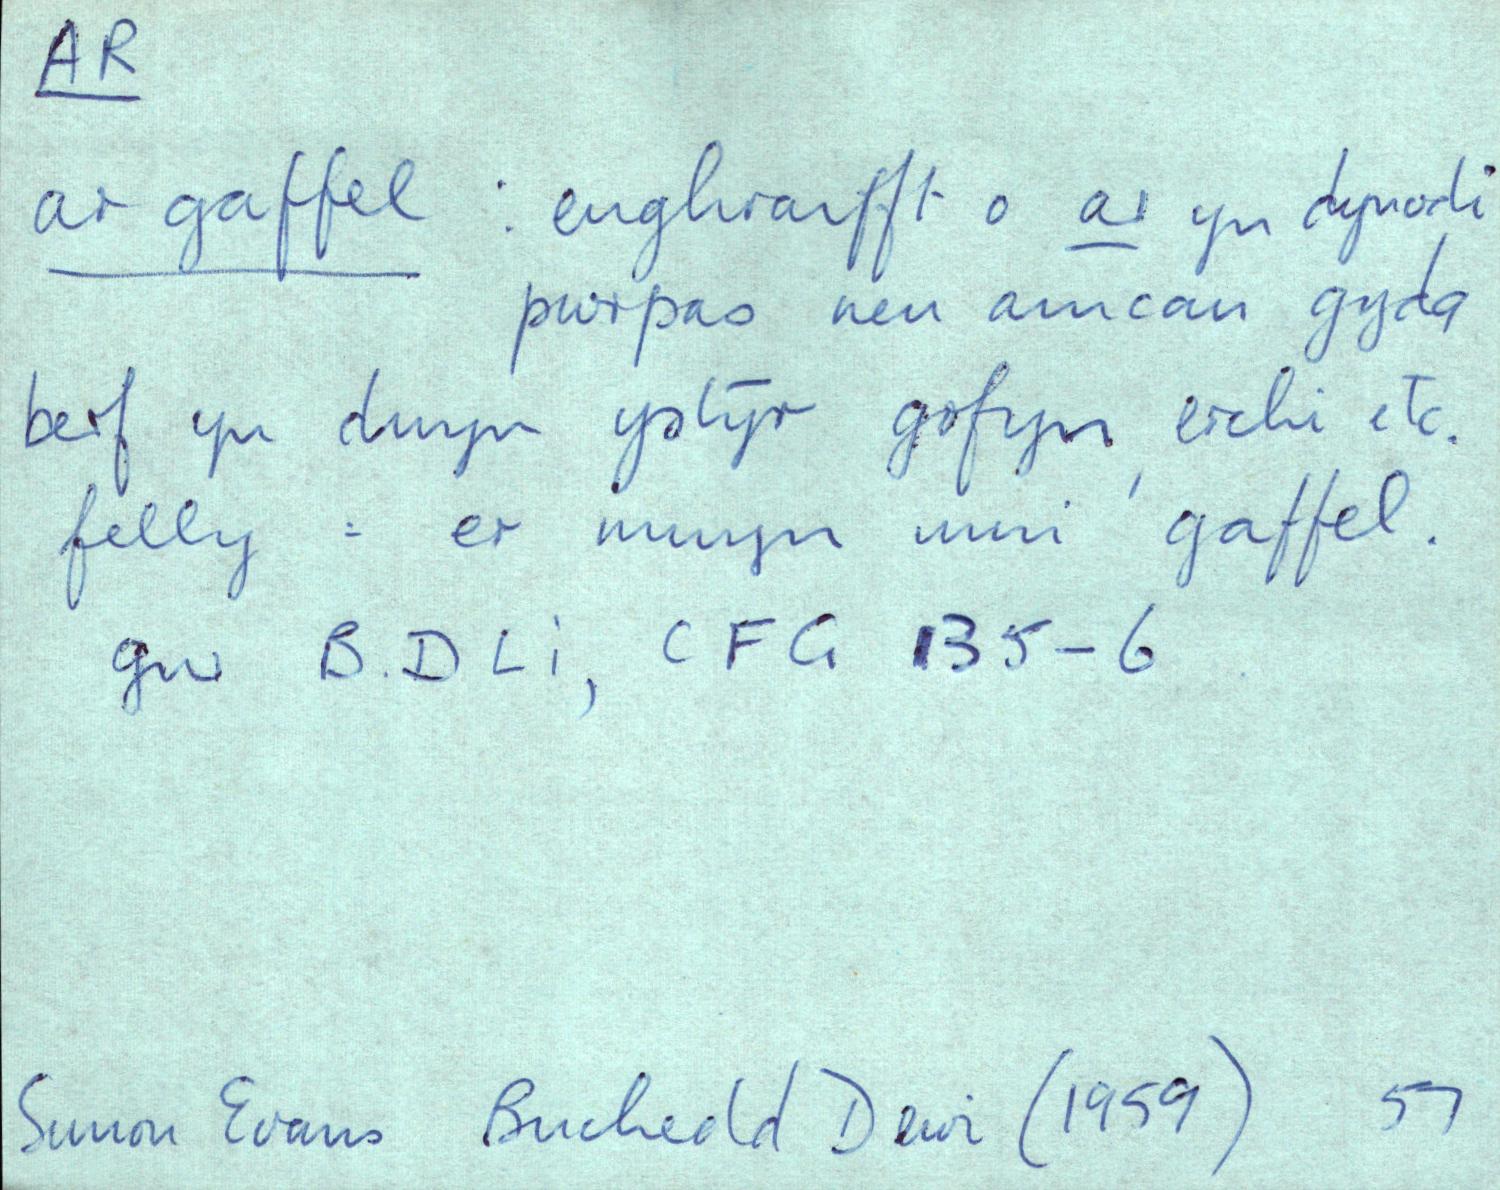 AR
ar gaffel : enghraifft o ar yn dynodi
pwrpas neu amcan gyda
berf yn dwyn ystyr gofyn, erchi etc.
felly = er mwyn imi gaffel.
gw B.DLi, CFG 135-6
Simon Evans Buchedd Dewi (1959) 57